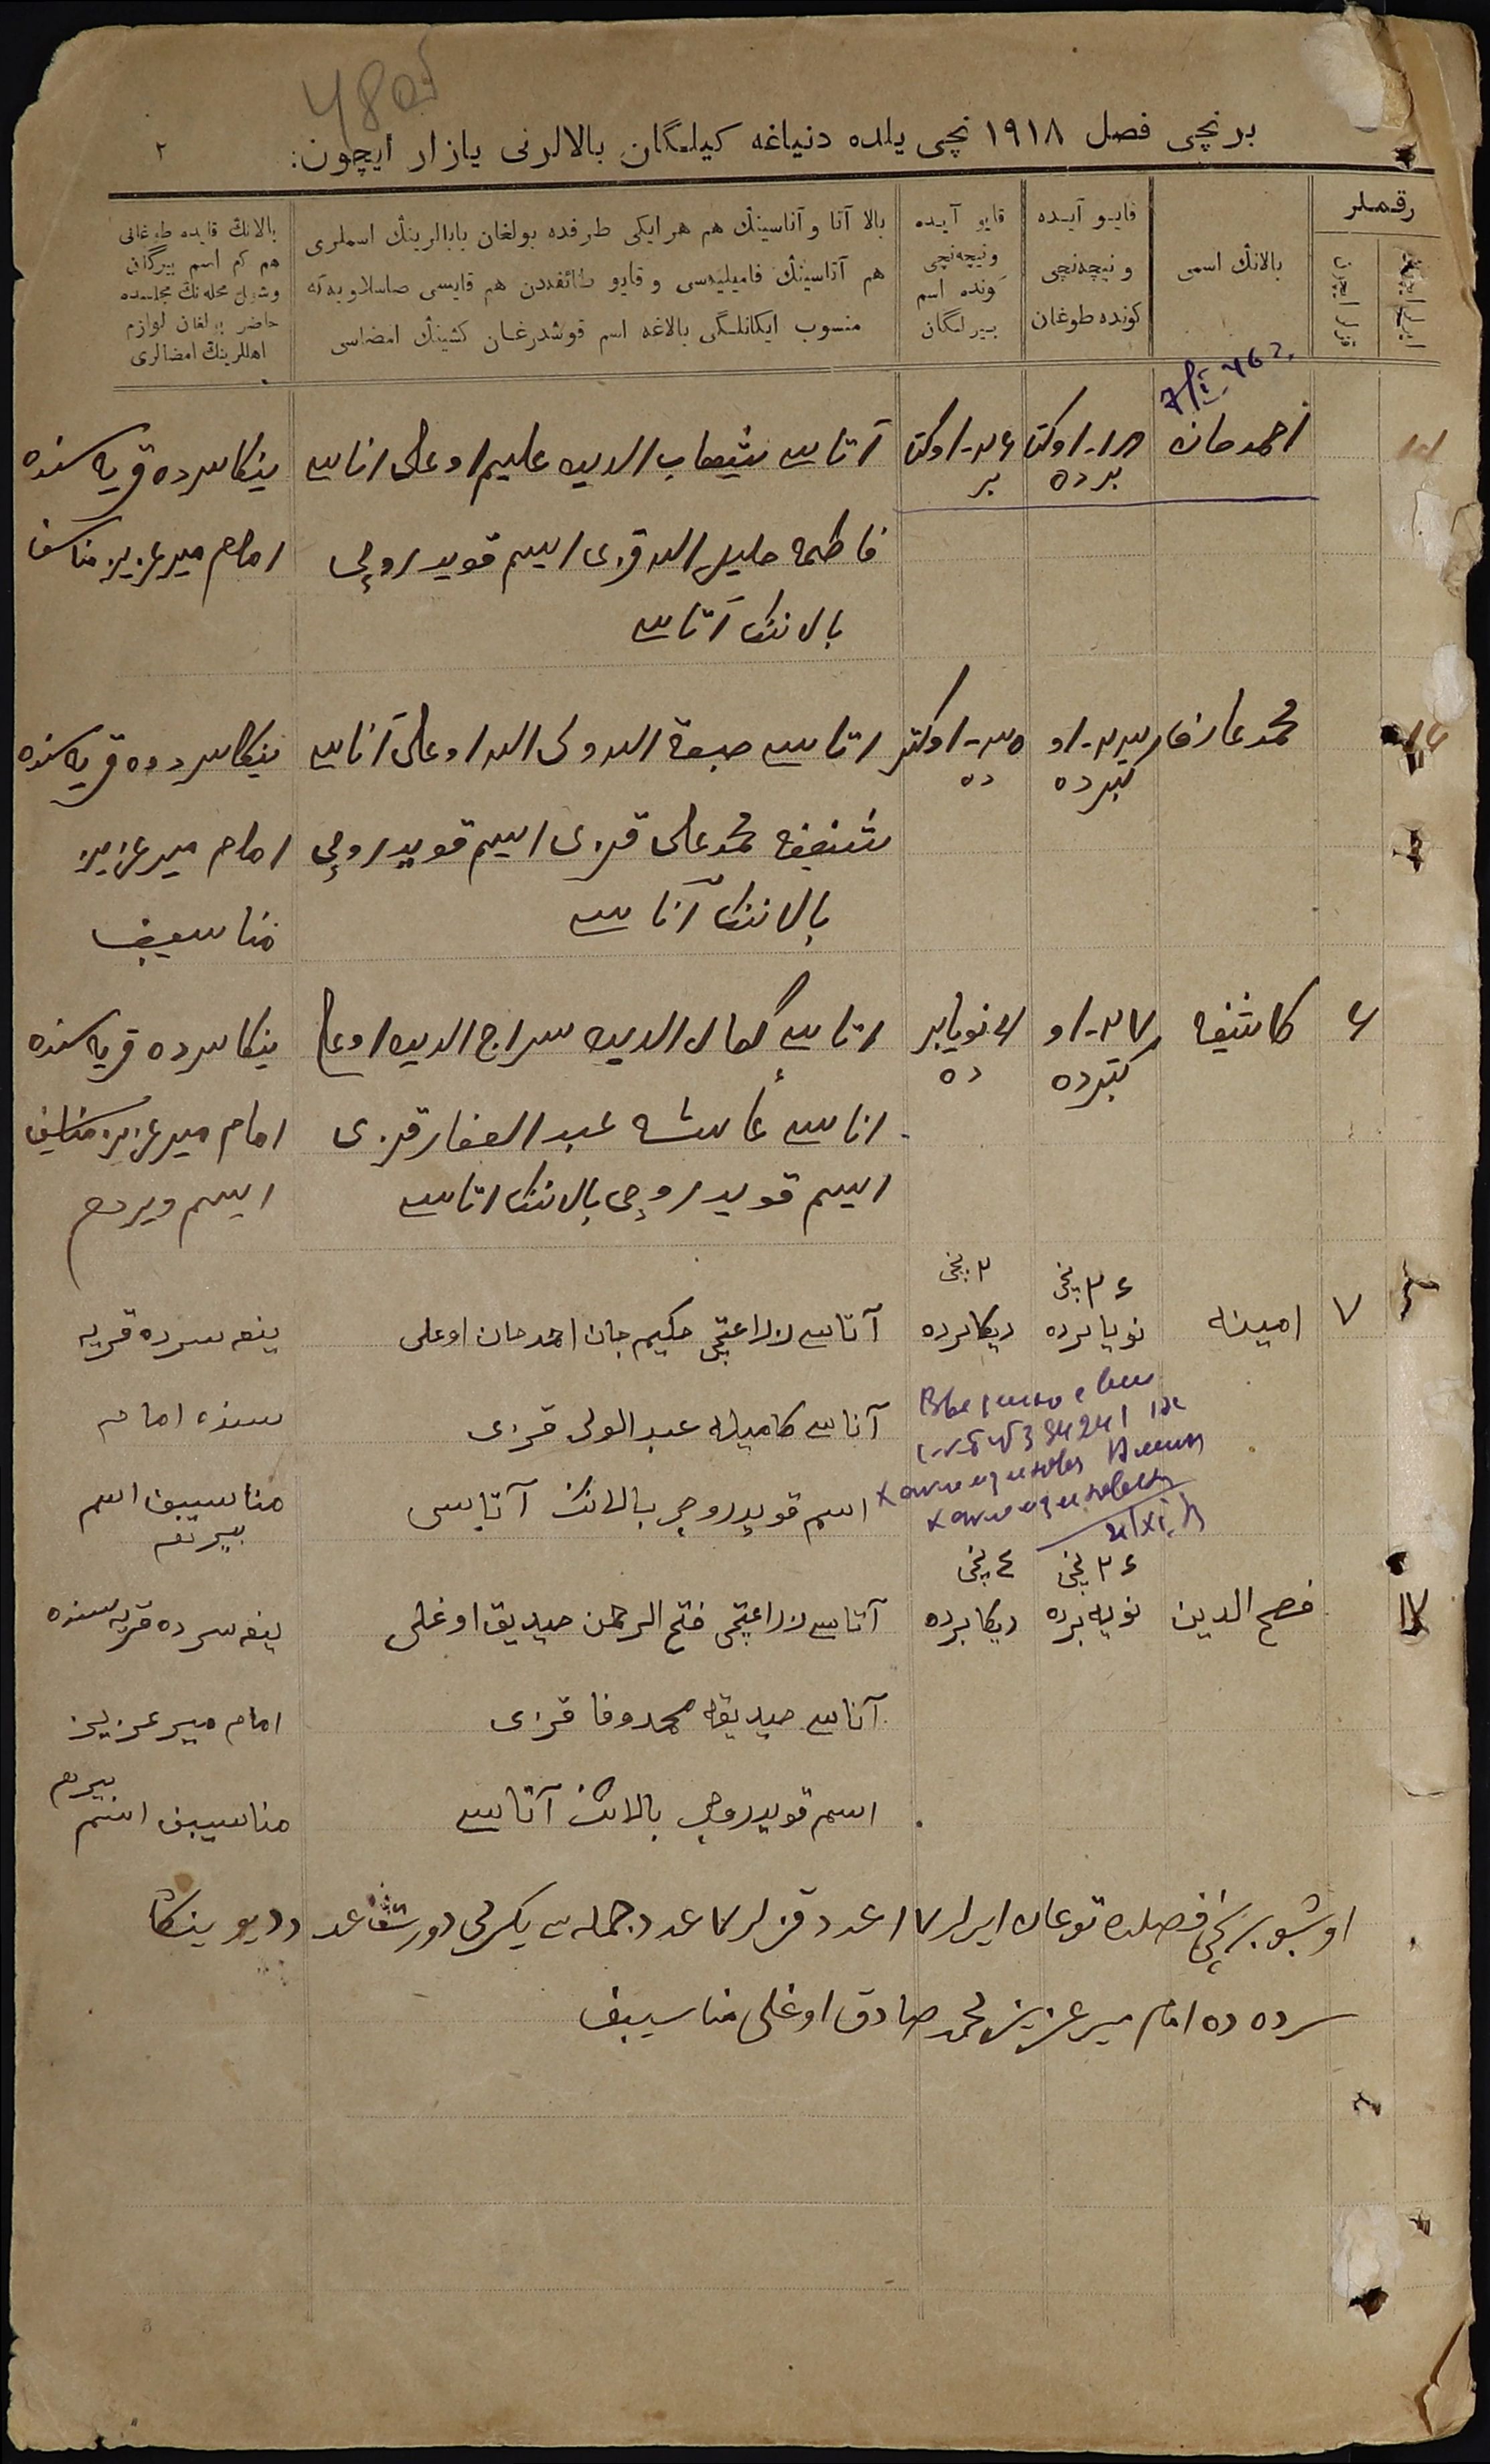 480
برنچی فصل ۱۹۱۸ نچی یلده دنیاغه کیلگان بالالرنی یازار ایچون:
۲
رقملر
بالانڭ اسمی
قایو آیده
و نیچه‌نچی
کونده طوغان
قایو آیده
و نیچه‌نچی
کونده اسم
بیرلگان
بالا آتا و آناسینڭ هم هر ایکی طرفده بولغان بابالرینڭ اسملری
هم آتاسینڭ فامیلیه‌سی و قایو طائفه‌دن هم قایسی صاصلاویه‌گه
منسوب ایکانلگی بالاغه اسم قوشدرغان کشینڭ امضاسی
بالانڭ قایده طوغانی
هم کم اسم بیرگان
وشول محله‌نڭ مجلسده
حاضر بولغان لوازم
اهللرینڭ امضالری
احمدجان
۱۸-اوکتا
برده
۲۶-اوکتا
بر
آتاسی شهاب الدین علیم اوغلی اناسی
فاطمه خلیل الله قزی اسیم قویدروچی
بالاننک آتاسی
ینکا سرده قریه سنده
امام میرعزیز مناسف
محمد عارف
۲۳-او
کتبرده
۳۵-اوکتبر
ده
اتاسی صبغة الله ولی الله اوغلی آناسی
شفیقه محمدعلی قزی اسیم قویدروچی
بالاننک آتاسی
ینکا سرده قریه سنده
امام میرعزیز
مناسیف
۶
کاشفه
۲۷-او
کتبرده
نویابر
ده
اتاسی کمال الدین سراج الدین اوغلی
اناسی عائشه عبد الغفار قزی
اسیم قویدروچی بالاننک اتاسی
ینکا سرده قریه سنده
امام میرعزیز مناسیف
اسیم ویردم
۷
امینه
۲۶ نچی
نویابرده
۲ نچی
دیکابرده
آتاسی زراعتچی حکیم جان احمدجان اوغلی
آناسی کامیله عبدالولی قزی
اسم قویدروچی بالانڭ آتاسی
ینه سرده قریه
سنده امام
مناسیبف اسم
بیردم
۱۷
فصح الدین
۲۶ نچی
نویه‌برده
۴ نچی
دیکابرده
آتاسی زراعتچی فتح الرحمن صدیق اوغلی
آناسی صدیقه محمدوفا قزی
اسم قویدروچی بالانڭ آتاسی
ینه سرده قریه سنده
امام میرعزیز
مناسیبف اسم بیردم
اوشبو برنچی فصلده توغان ایرلر ۱۷ عدد قزلر ۷ عدد جمله سی یکرمی دورت عدد دیو ینکا
سرده ده امام میرعزیز محمدصادق اوغلی مناسیبف